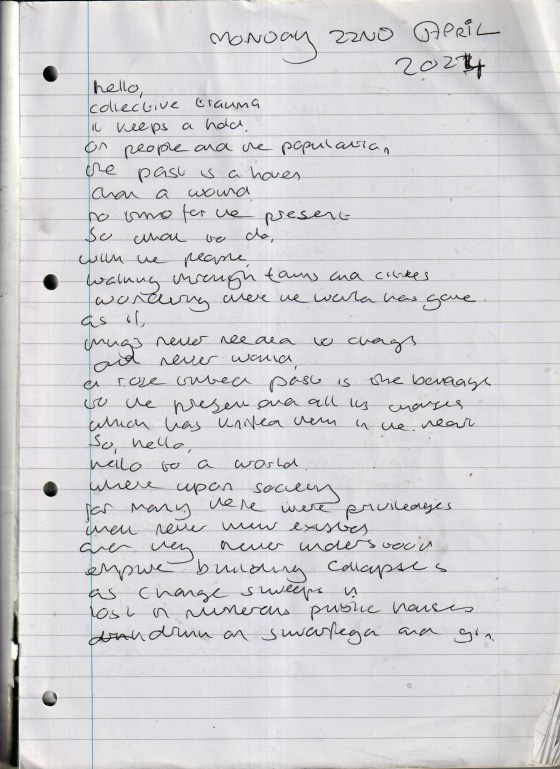 MONDAY 22ND APRIL
2024
hello,
collective trauma
it keeps a hold
on people and the population,
the past is a haven
than a wound
no time for the present
So what to do,
with the people,
walking through towns and cities
wondering where the world has gone.
as if,
things never needed to change
and never would,
a rose tinted past is the bandage
to the present and all its changes
which has knifed them in the heart
So, hello,
hello to a world
where upon society
for many there were privileges
they never knew existed
and they never understood
empire building collapses
as change sweeps in
lost in numerous public houses
drunk on and gin